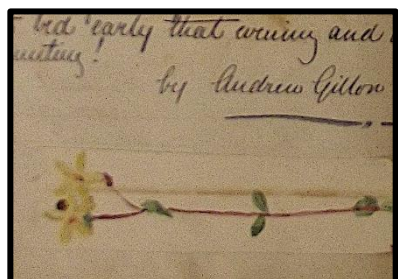 bed early that evening and
by Andrew Gillon